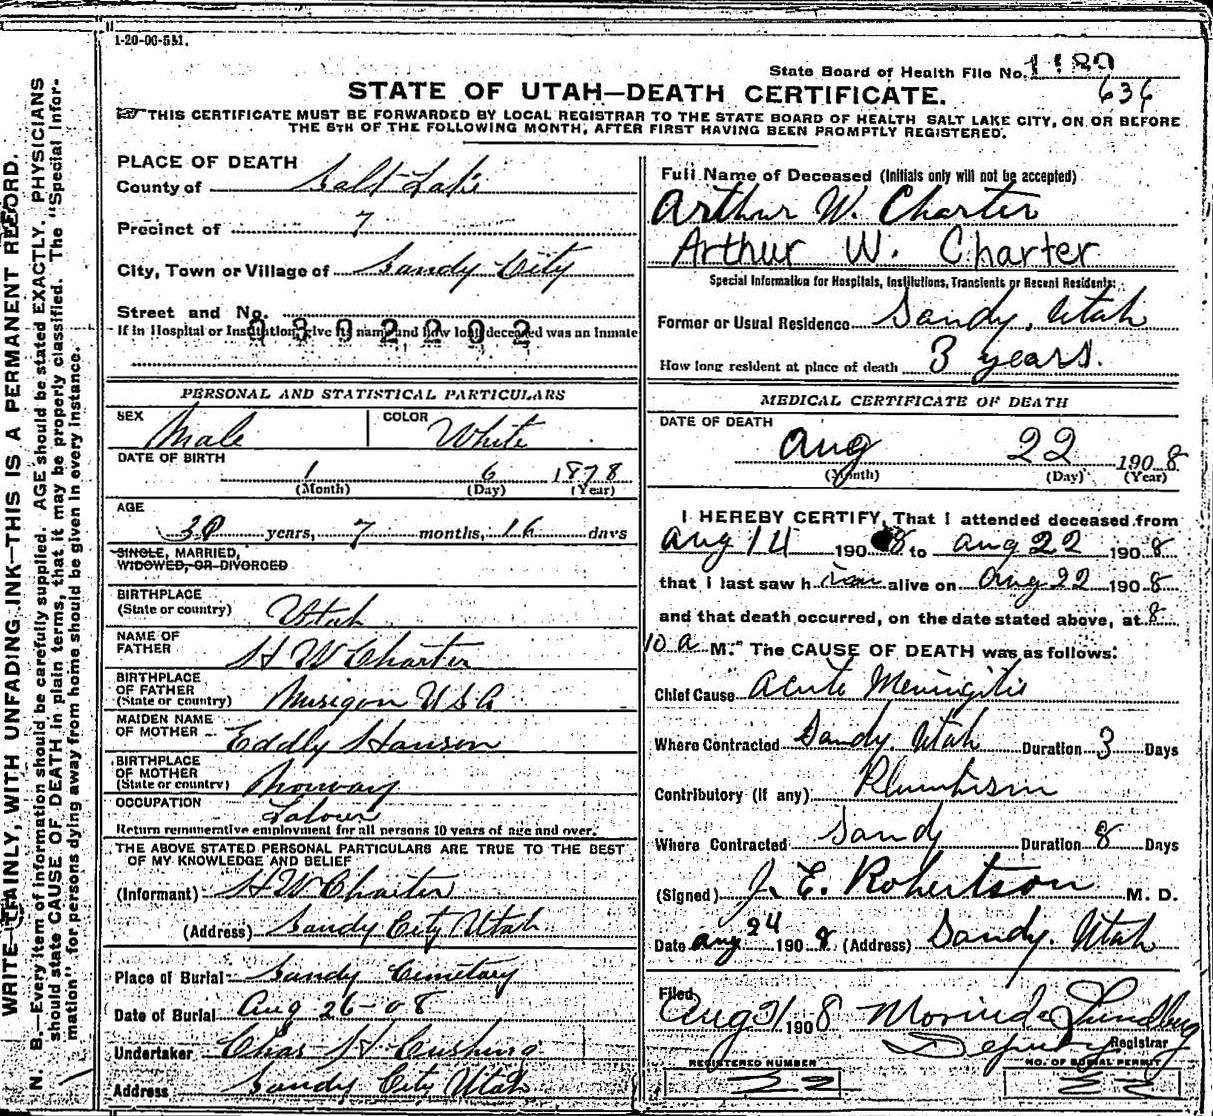 1-20-06-551.
State Board of Health File No. 1189
636
STATE OF UTAH—DEATH CERTIFICATE.
THIS CERTIFICATE MUST BE FORWARDED BY LOCAL REGISTRAR TO THE STATE BOARD OF HEALTH SALT LAKE CITY, ON OR BEFORE
THE 5TH OF THE FOLLOWING MONTH, AFTER FIRST HAVING BEEN PROMPTLY REGISTERED.
WRITE PLAINLY, WITH UNFADING INK—THIS IS A PERMANENT RECORD.
N. B.—Every item of information should be carefully supplied. AGE should be stated EXACTLY. PHYSICIANS
should state CAUSE OF DEATH in plain terms, that it may be properly classified. The "Special Infor-
mation" for persons dying away from home should be given in every instance.
PLACE OF DEATH
County of Salt Lake
Precinct of 7
City, Town or Village of Sandy City
Street and No.
If in Hospital or Institution, give its name and how long deceased was an inmate
PERSONAL AND STATISTICAL PARTICULARS
SEX Male COLOR White
DATE OF BIRTH
1 6 1878
(Month) (Day) (Year)
AGE
30 years, 7 months, 16 days
SINGLE, MARRIED,
WIDOWED, OR DIVORCED
BIRTHPLACE
(State or country) Utah
NAME OF
FATHER H W Charter
BIRTHPLACE
OF FATHER
(State or country) Musigon U S A
MAIDEN NAME
OF MOTHER Eddly Hanson
BIRTHPLACE
OF MOTHER
(State or country) Norway
OCCUPATION Labour
Return remunerative employment for all persons 10 years of age and over.
THE ABOVE STATED PERSONAL PARTICULARS ARE TRUE TO THE BEST
OF MY KNOWLEDGE AND BELIEF
(Informant) H W Charter
(Address) Sandy City Utah
Place of Burial Sandy Cemetary
Date of Burial Aug 26-08
Undertaker Chas H Cushing
Address Sandy City Utah
Full Name of Deceased (Initials only will not be accepted)
Arthur W. Charter
Arthur W. Charter
Special Information for Hospitals, Institutions, Transients or Recent Residents:
Former or Usual Residence Sandy, Utah
How long resident at place of death 3 years.
MEDICAL CERTIFICATE OF DEATH
DATE OF DEATH
Aug 22 1908
(Month) (Day) (Year)
I HEREBY CERTIFY, That I attended deceased from
Aug 14 1908 to Aug 22 1908
that I last saw him alive on Aug 22 1908
and that death occurred, on the date stated above, at 8
10 a M. The CAUSE OF DEATH was as follows:
Chief Cause Acute Meningitis
Where Contracted Sandy, Utah Duration 3 Days
Contributory (if any) Plumbism
Where Contracted Sandy Duration 8 Days
(Signed) J. E. Robertson M. D.
Date Aug 24 1908 (Address) Sandy, Utah
Filed
Aug 31 1908 Morinda Sundberg
Deputy Registrar
REGISTERED NUMBER NO. OF BURIAL PERMIT
22 22